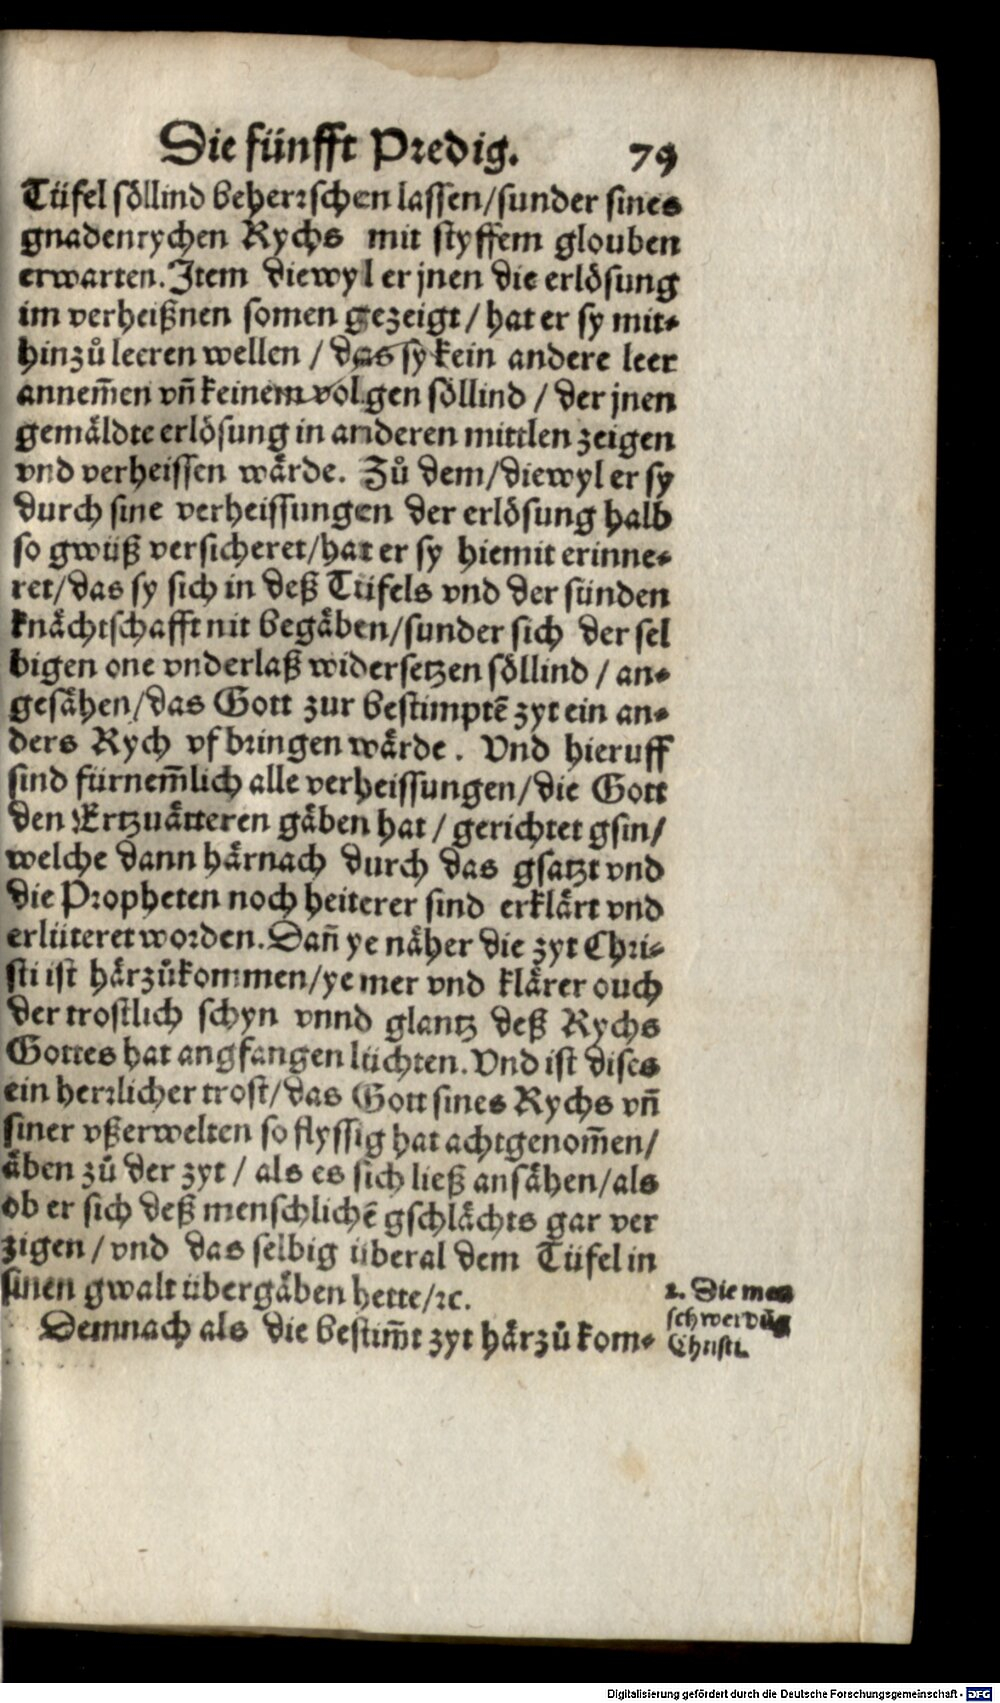 Die fünfft Predig. 79
Tüfel söllind beherrschen lassen/sunder sines
gnadenrychen Rychs mit styffem glouben
erwarten. Item diewyl er jnen die erlösung
im verheißnen somen gezeigt / hat er sy mit⸗
hinzů leeren wellen / das sy kein andere leer
annem̄en vn̄ keinem volgen söllind / der jnen
gemäldte erlösung in anderen mittlen zeigen
vnd verheissen wårde. Zů dem/diewyl er sy
durch sine verheissungen der erlösung halb
so gwüß versicheret/hat er sy hiemit erinne⸗
ret/das sy sich in deß Tüfels vnd der sünden
knächtschafft nit begäben/sunder sich der sel
bigen one vnderlaß widersetzen söllind / an⸗
gesähen/das Gott zur bestimptē zyt ein an⸗
ders Rych vfbringen wärde. Vnd hieruff
sind fürnem̄lich alle verheissungen/die Gott
den Ertzuätteren gäben hat / gerichtet gsin/
welche dann härnach durch das gsatzt vnd
die Propheten noch heiterer sind erklärt vnd
erlüteret worden. Dan̄ ye näher die zyt Chri⸗
sti ist härzůkommen/ye mer vnd klärer ouch
der trostlich schyn vnnd glantz deß Rychs
Gottes hat angfangen lüchten. Vnd ist dises
ein herrlicher trost/das Gott sines Rychs vn̄
siner vßerwelten so flyssig hat achtgenom̄en/
äben zů der zyt / als es sich ließ ansähen/als
ob er sich deß menschlichē gschlächts gar ver
zigen / vnd das selbig überal dem Tüfel in
sinen gwalt übergäben hette/ꝛc.
Demnach als die bestim̄t zyt härzů kom⸗
2. Die men
schwerdūg
Christi.
Digitalisierung gefördert durch die Deutsche Forschungsgemeinschaft - DFG